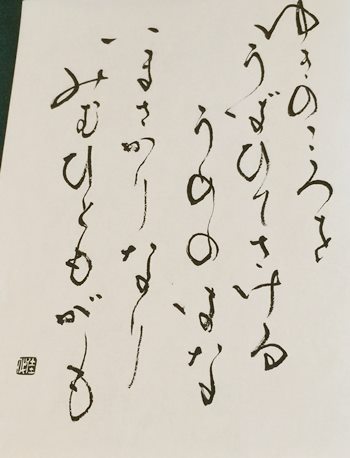 ゆきのいろを
うばひてさける
うめのはな
いまさかりなり
みむひともがも